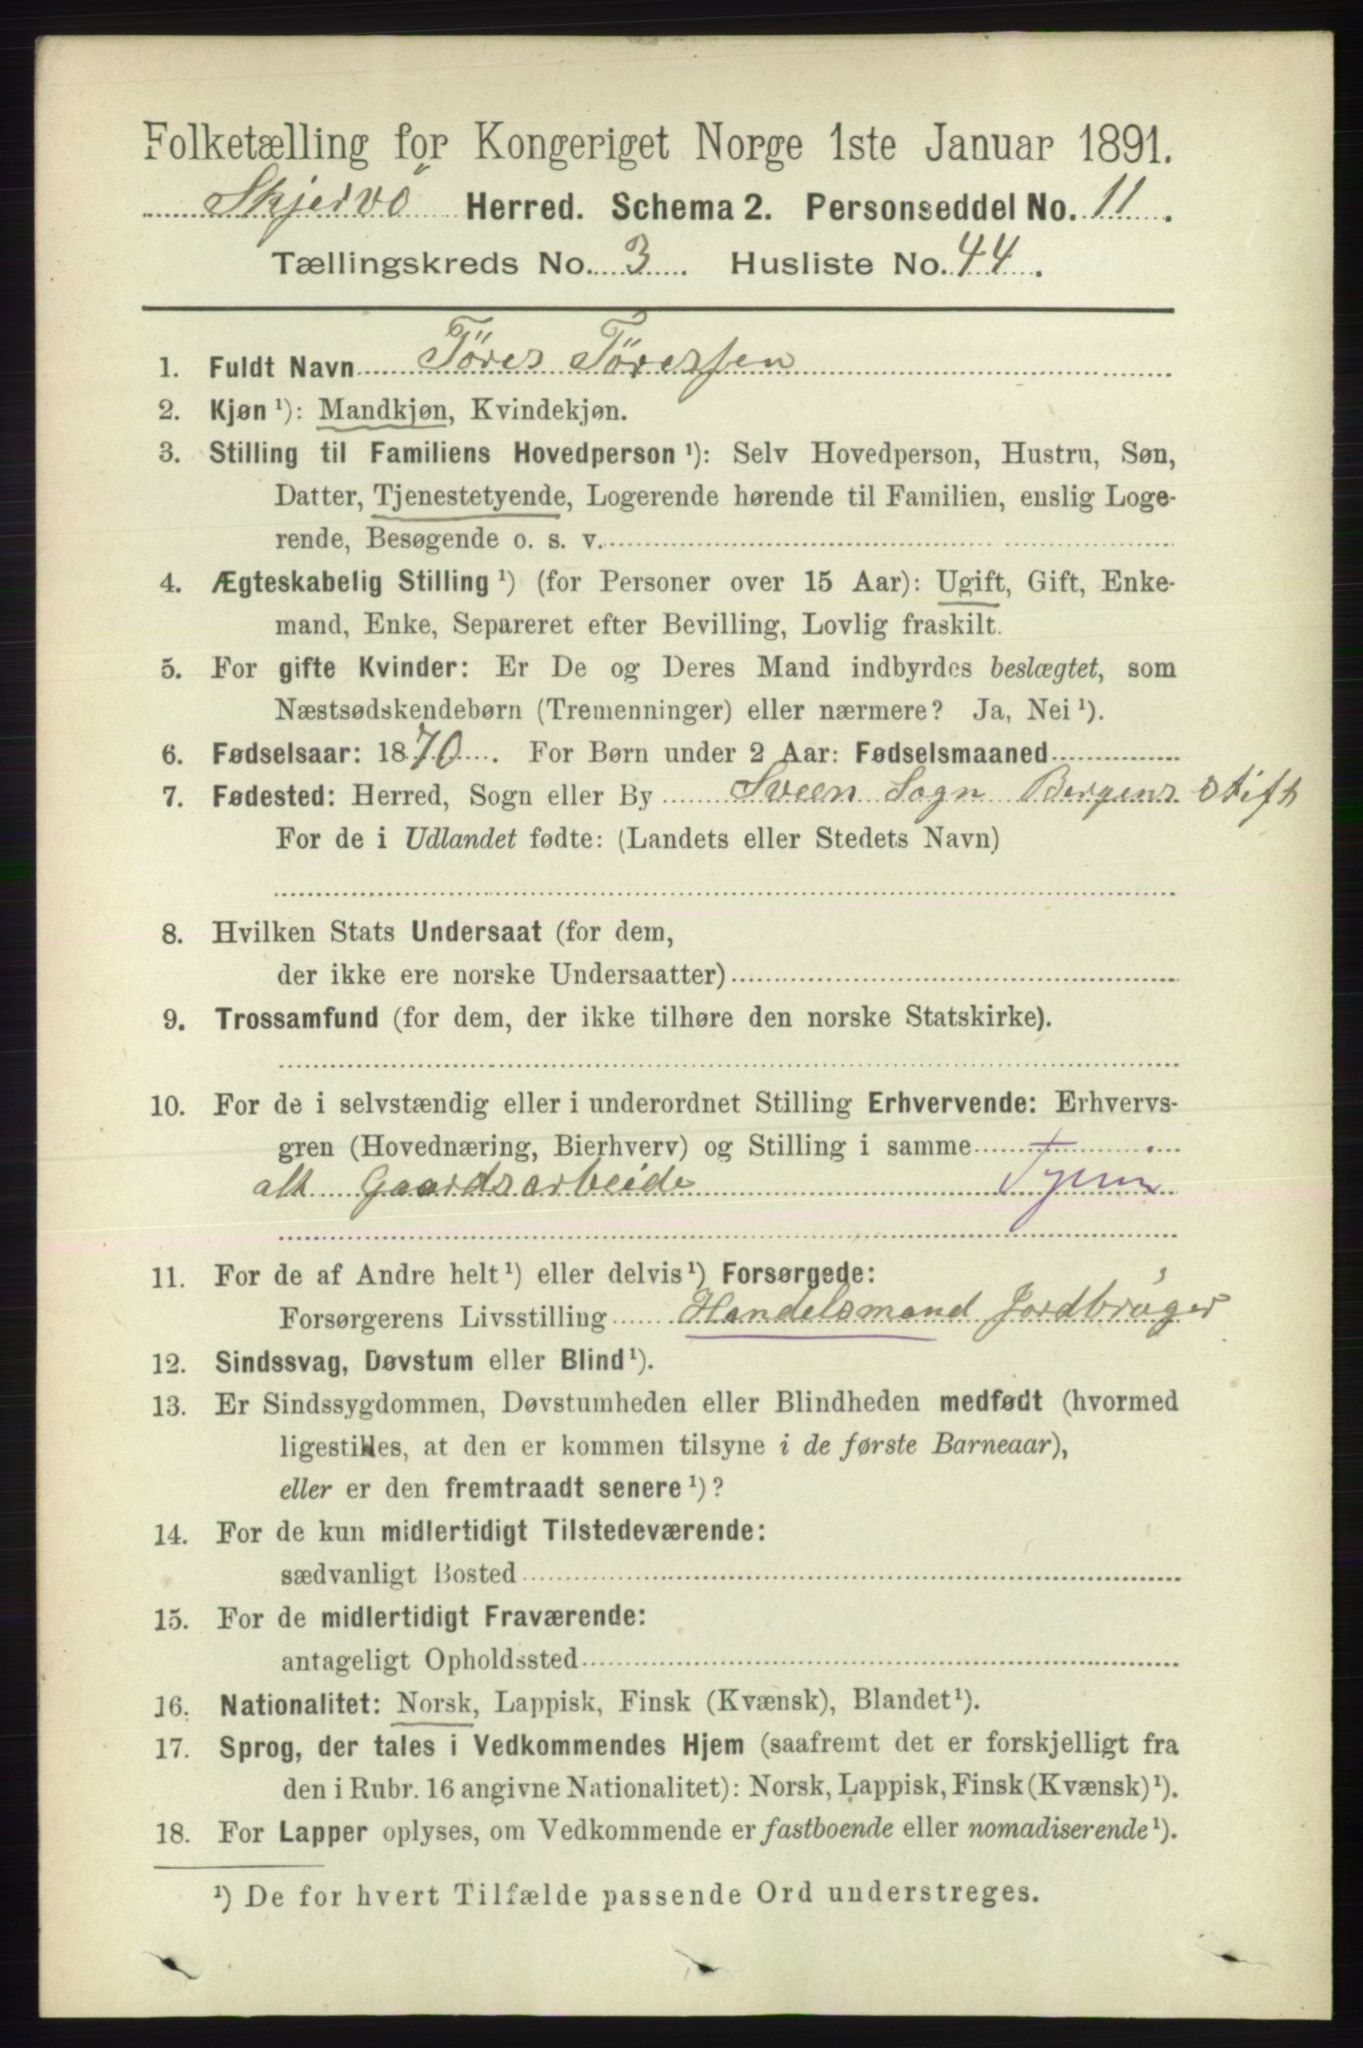 Folketælling for Kongeriget Norge 1ste Januar 1891.
Skjervö Herred. Schema 2. Personseddel No. 11.
Tællingskreds No. 3. Husliste No. 44.
1. Fuldt Navn Töres Töressen
2. Kjøn ¹): Mandkjøn, Kvindekjøn.
3. Stilling til Familiens Hovedperson ¹): Selv Hovedperson, Hustru, Søn,
Datter, Tjenestetyende, Logerende hørende til Familien, enslig Loge-
rende, Besøgende o. s. v.
4. Ægteskabelig Stilling ¹) (for Personer over 15 Aar): Ugift, Gift, Enke-
mand, Enke, Separeret efter Bevilling, Lovlig fraskilt.
5. For gifte Kvinder: Er De og Deres Mand indbyrdes beslægtet, som
Næstsødskendebørn (Tremenninger) eller nærmere? Ja, Nei ¹).
6. Fødselsaar: 1870. For Børn under 2 Aar: Fødselsmaaned
7. Fødested: Herred, Sogn eller By Sveen Sogn Bergens Stift
For de i Udlandet fødte: (Landets eller Stedets Navn)
8. Hvilken Stats Undersaat (for dem,
der ikke ere norske Undersaatter)
9. Trossamfund (for dem, der ikke tilhøre den norske Statskirke).
10. For de i selvstændig eller i underordnet Stilling Erhvervende: Erhvervs-
gren (Hovednæring, Bierhverv) og Stilling i samme
alt Gaardsarbeide
11. For de af Andre helt ¹) eller delvis ¹) Forsørgede:
Forsørgerens Livsstilling Handelsmand Jordbruger
12. Sindssvag, Døvstum eller Blind ¹).
13. Er Sindssygdommen, Døvstumheden eller Blindheden medfødt (hvormed
ligestilles, at den er kommen tilsyne i de første Barneaar),
eller er den fremtraadt senere ¹)?
14. For de kun midlertidigt Tilstedeværende:
sædvanligt Bosted
15. For de midlertidigt Fraværende:
antageligt Opholdssted
16. Nationalitet: Norsk, Lappisk, Finsk (Kvænsk), Blandet ¹).
17. Sprog, der tales i Vedkommendes Hjem (saafremt det er forskjelligt fra
den i Rubr. 16 angivne Nationalitet): Norsk, Lappisk, Finsk (Kvænsk) ¹).
18. For Lapper oplyses, om Vedkommende er fastboende eller nomadiserende ¹).
¹) De for hvert Tilfælde passende Ord understreges.